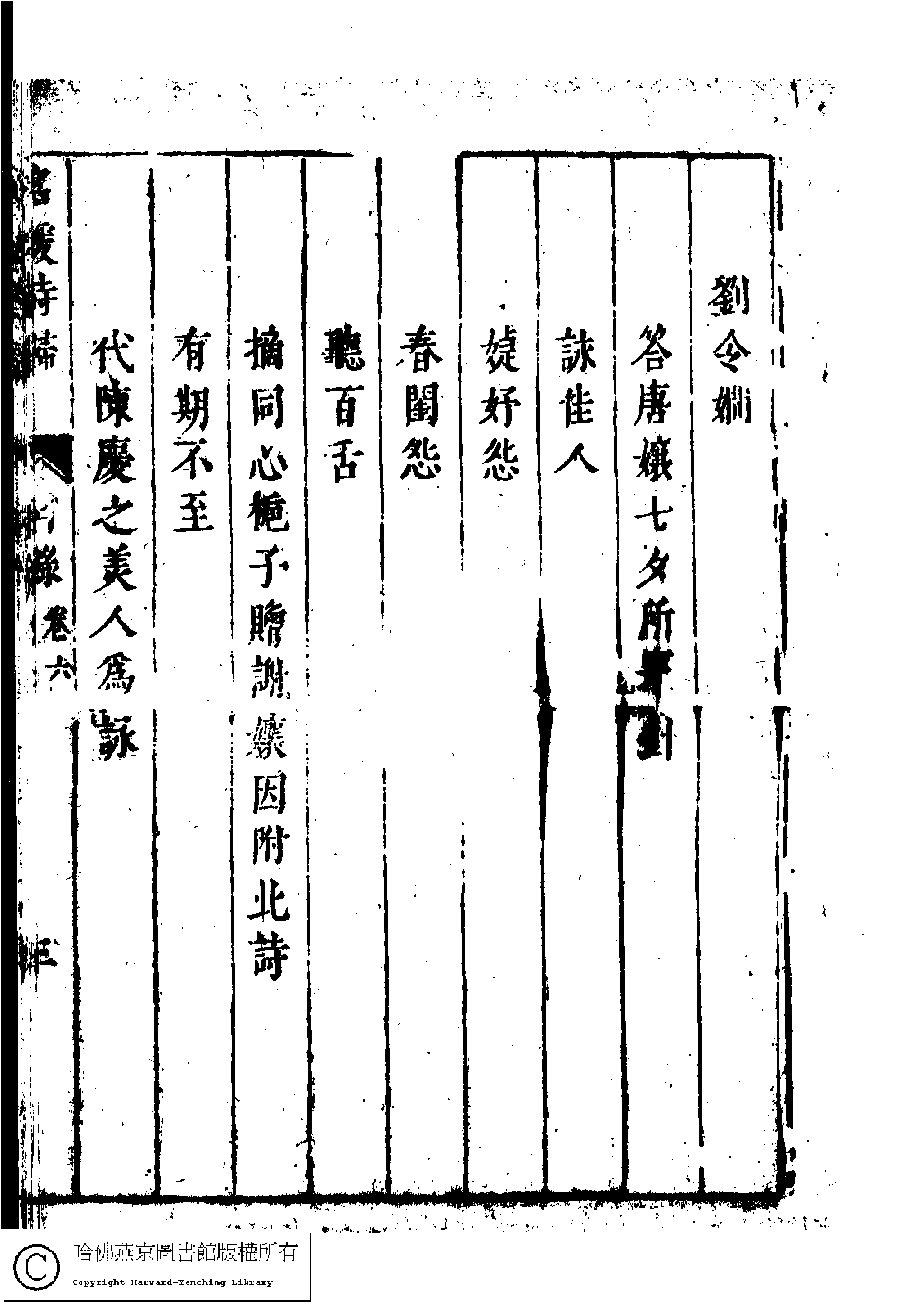 劉令嫺
答唐孃七夕所穿鍼
詠佳人
婕妤怨
春閨怨
聽百舌
摘同心梔子贈謝孃因附此詩
有期不至
代陳慶之美人爲詠
名媛詩歸
目錄 卷六
三
哈佛燕京圖書館版權所有
Copyright Harvard-Yenching Library